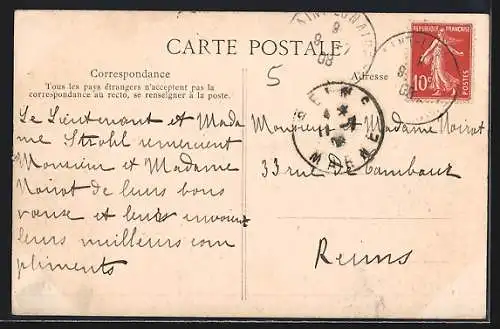 CARTE POSTALE
Correspondance
Tous les pays étrangers n'acceptent pas la
correspondance au recto, se renseigner à la poste.
Le Lieutenant et Mada
me Strohl remercient
Monsieur et Madame
Noirot de leurs bons
vœux et leurs envoient
leurs meilleurs com
pliments
5
Adresse
Monsieur et Madame Noirot
33 rue de Tambour
Reims
10c
POSTES
REIMS
MARNE